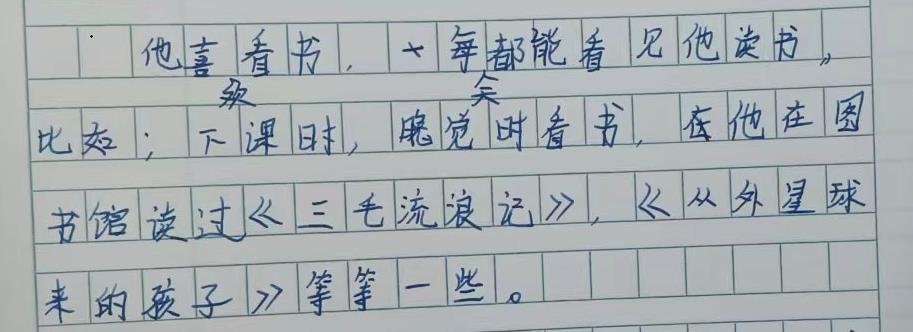 他喜欢看书，每天都能看见他读书。
比如；下课时，睡觉时看书，在他在图
书馆读过《三毛流浪记》，《从外星球
来的孩子》等等一些。